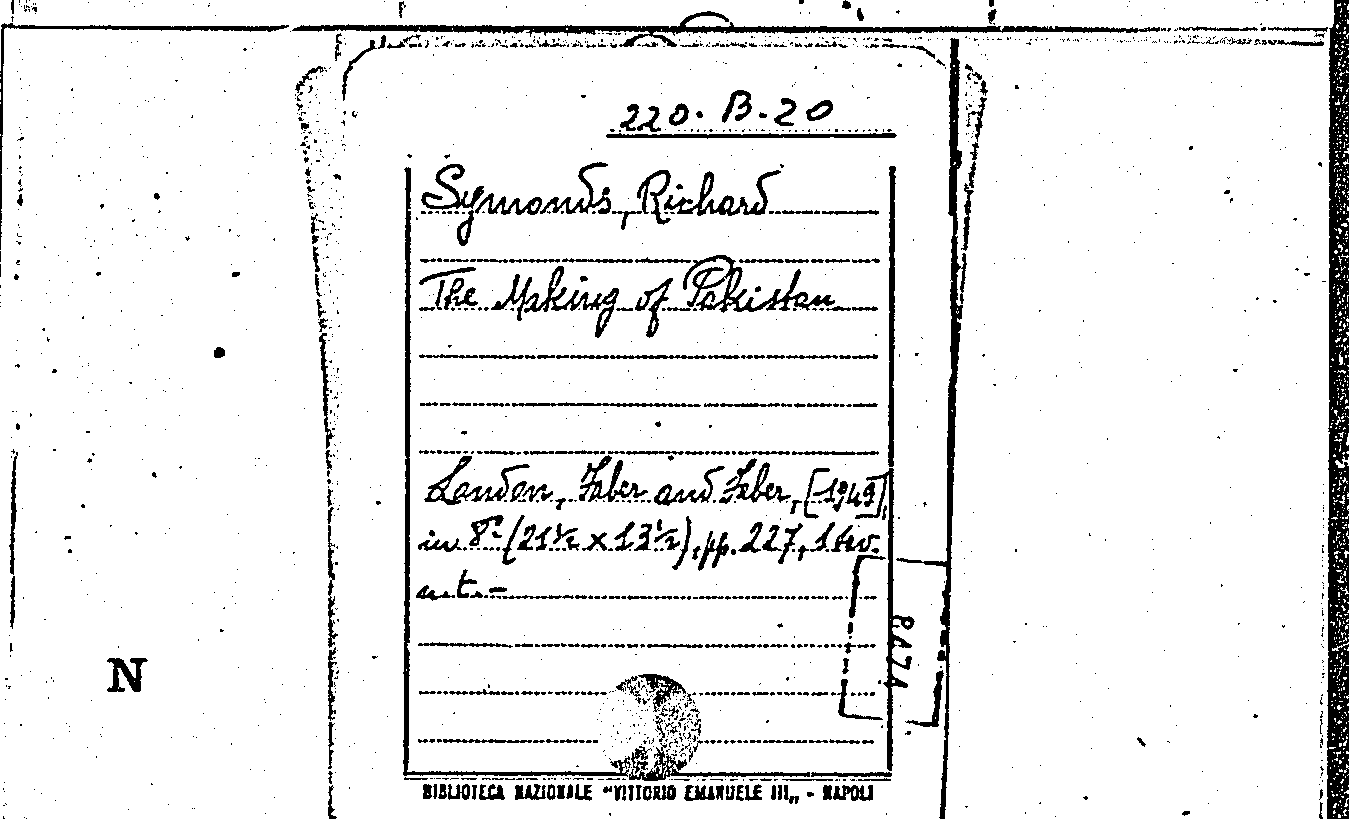 220. B. 20
Symonds, Richard
The Making of Pakistan
London, Faber and Faber, [1949],
in 8° (21½ x 13½), pp. 227, 1 tav.
n.t. -
8474
N
BIBLIOTECA NAZIONALE "VITTORIO EMANUELE III„ - NAPOLI